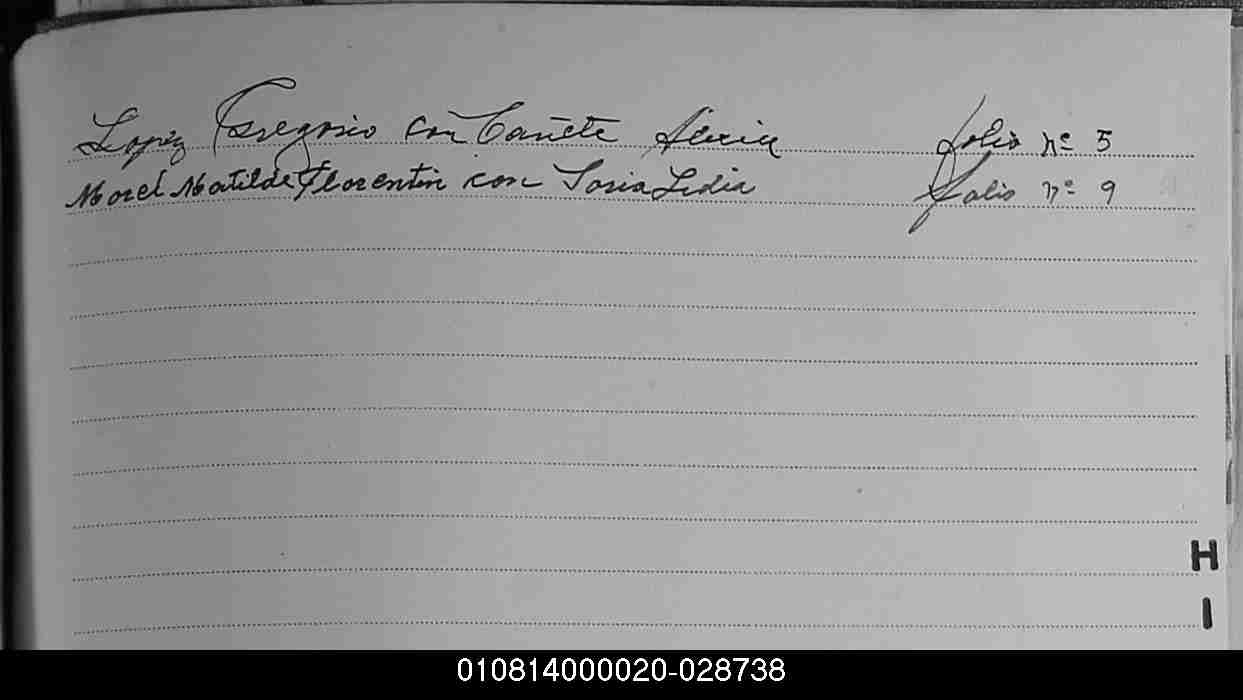 Lopez Gregorio con Cañete Alicia folio nº 5
Morel Matilde Florentin con Soria Lidia folio nº 9
H
I
010814000020-028738